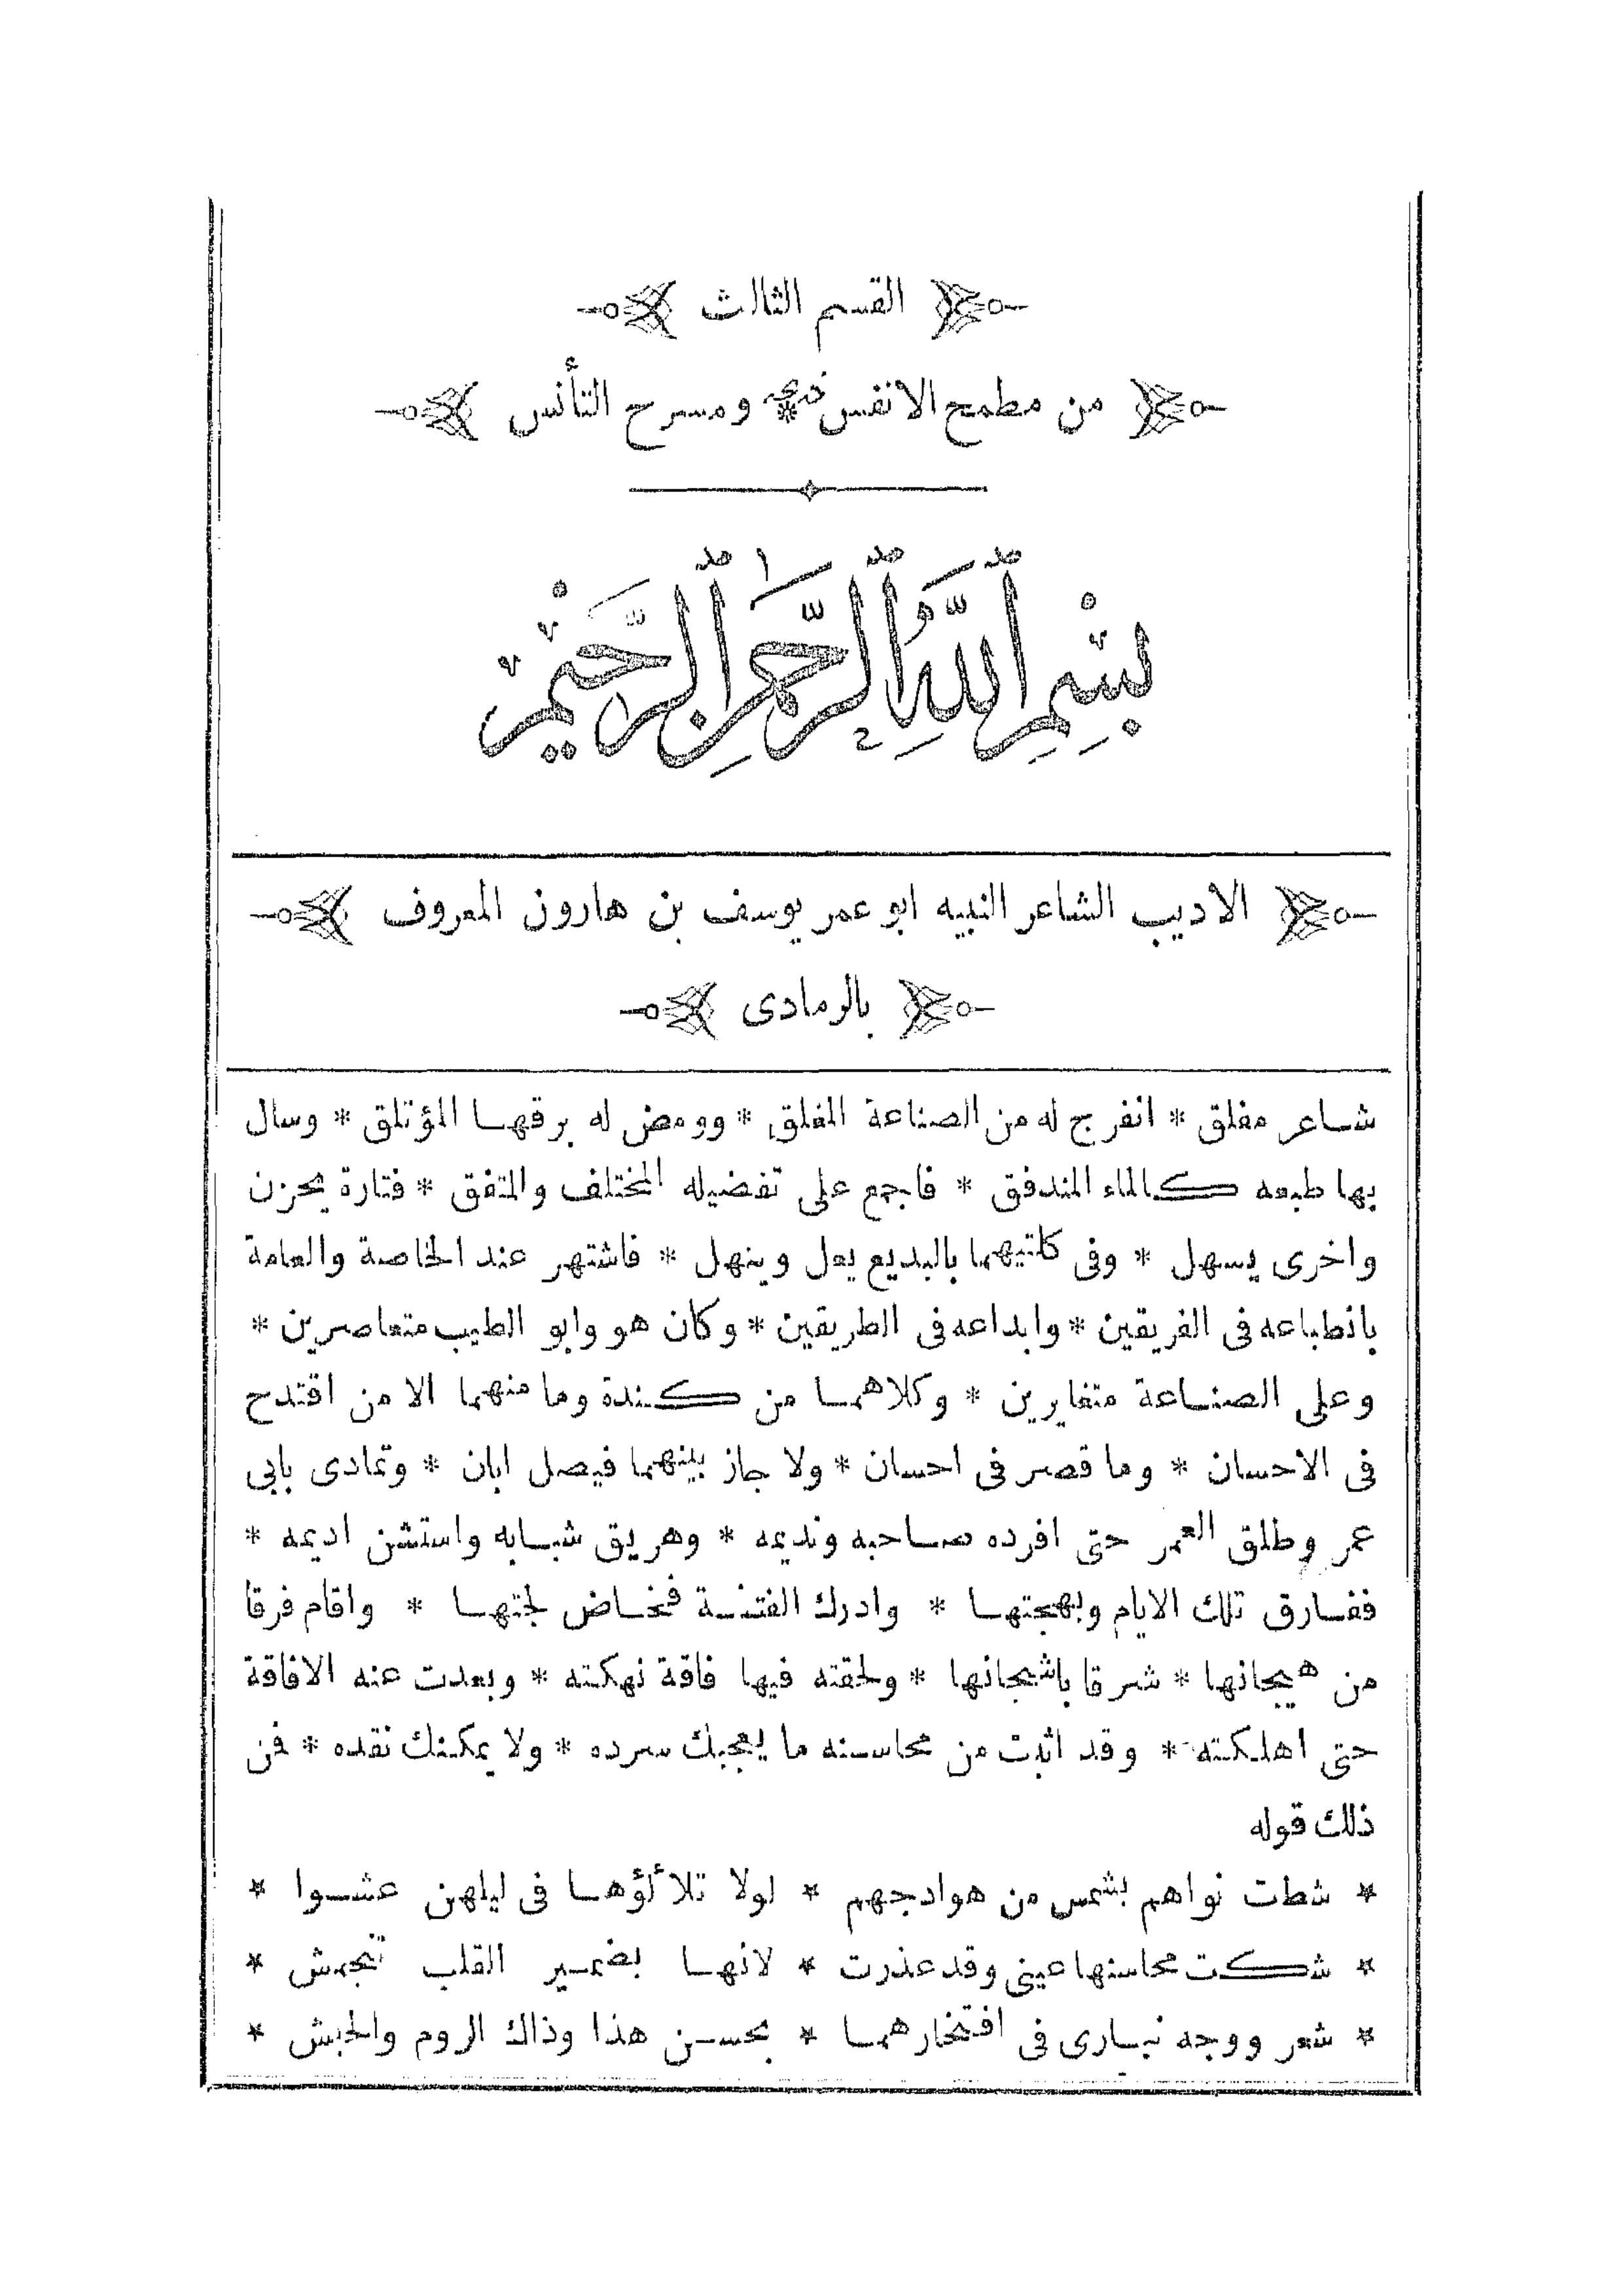 القسم الثالث
من مطمح الانفس * ومسرح التأنس
بِسْمِ ٱللَّهِ ٱلرَّحْمَٰنِ ٱلرَّحِيْمِ
الاديب الشاعر النبيه ابو عمر يوسف بن هارون المعروف
بالرمادى
شاعر مفلق * انفرج له من الصناعة المغلق * وومض له برقها المؤتلق * وسال
بها طبعه كالماء المندفق * فاجمع على تفضيله المختلف والمتفق * فتارة يحزن
واخرى يسهل * وفى كلتيهما بالبديع يعل وينهل * فاشتهر عند الخاصة والعامة
بانطباعه فى الفريقين * وابداعه فى الطريقين * وكان هو وابو الطيب متعاصرين *
وعلى الصناعة متغايرين * وكلاهما من كندة وما منهما الا من اقتدح
فى الاحسان * وما قصر فى احسان * ولا جاز بينهما فيصل ابان * وتمادى بابى
عمر وطلق العمر حتى افرده صاحبه ونديمه * وهريق شبابه واستشن اديمه *
ففارق تلك الايام وبهجتها * وادرك الفتنة فخاض لجتها * واقام فرقا
من هيجانها * شرقا باشجانها * ولحقته فيها فاقة نهكته * وبعدت عنه الافاقة
حتى اهلكته * وقد اثبت من محاسنه ما يعجبك سرده * ولا يمكنك نقده * فمن
ذلك قوله
* شطت نواهم بشمس من هوادجهم * لولا تلألؤها فى ليلهن عشوا *
* شكت محاسنها عينى وقد عذرت * لانها بضمير القلب تنجمش *
* شعر ووجه تبارى فى افتخارهما * بحسن هذا وذاك الروم والحبش *